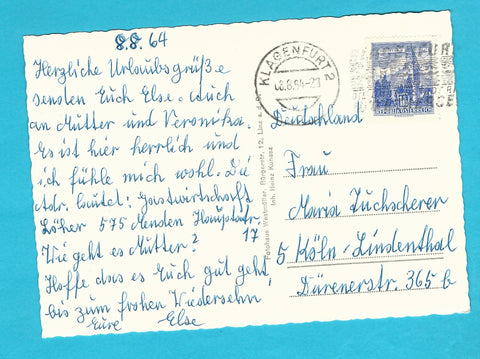 8.8.64
Herzliche Urlaubsgrüße
senden Euch Else. auch
an Mutter und Veronika.
Es ist hier herrlich und
ich fühle mich wohl. Die
Adr. lautet: Gastwirtschaft
Löher 575 Menden Hauptstr
17
Wie geht es Mutter?
Hoffe das es Euch gut geht
bis zum frohen Wiedersehn
Eure Else
Fotohaus Bürgerstr. 12, Linz a. d.
Inh. Heinz Kunesz
KLAGENFURT 2
Deutschland
Frau
Maria Zuchscherer
5 Köln-Lindenthal
Dürenerstr. 365 b